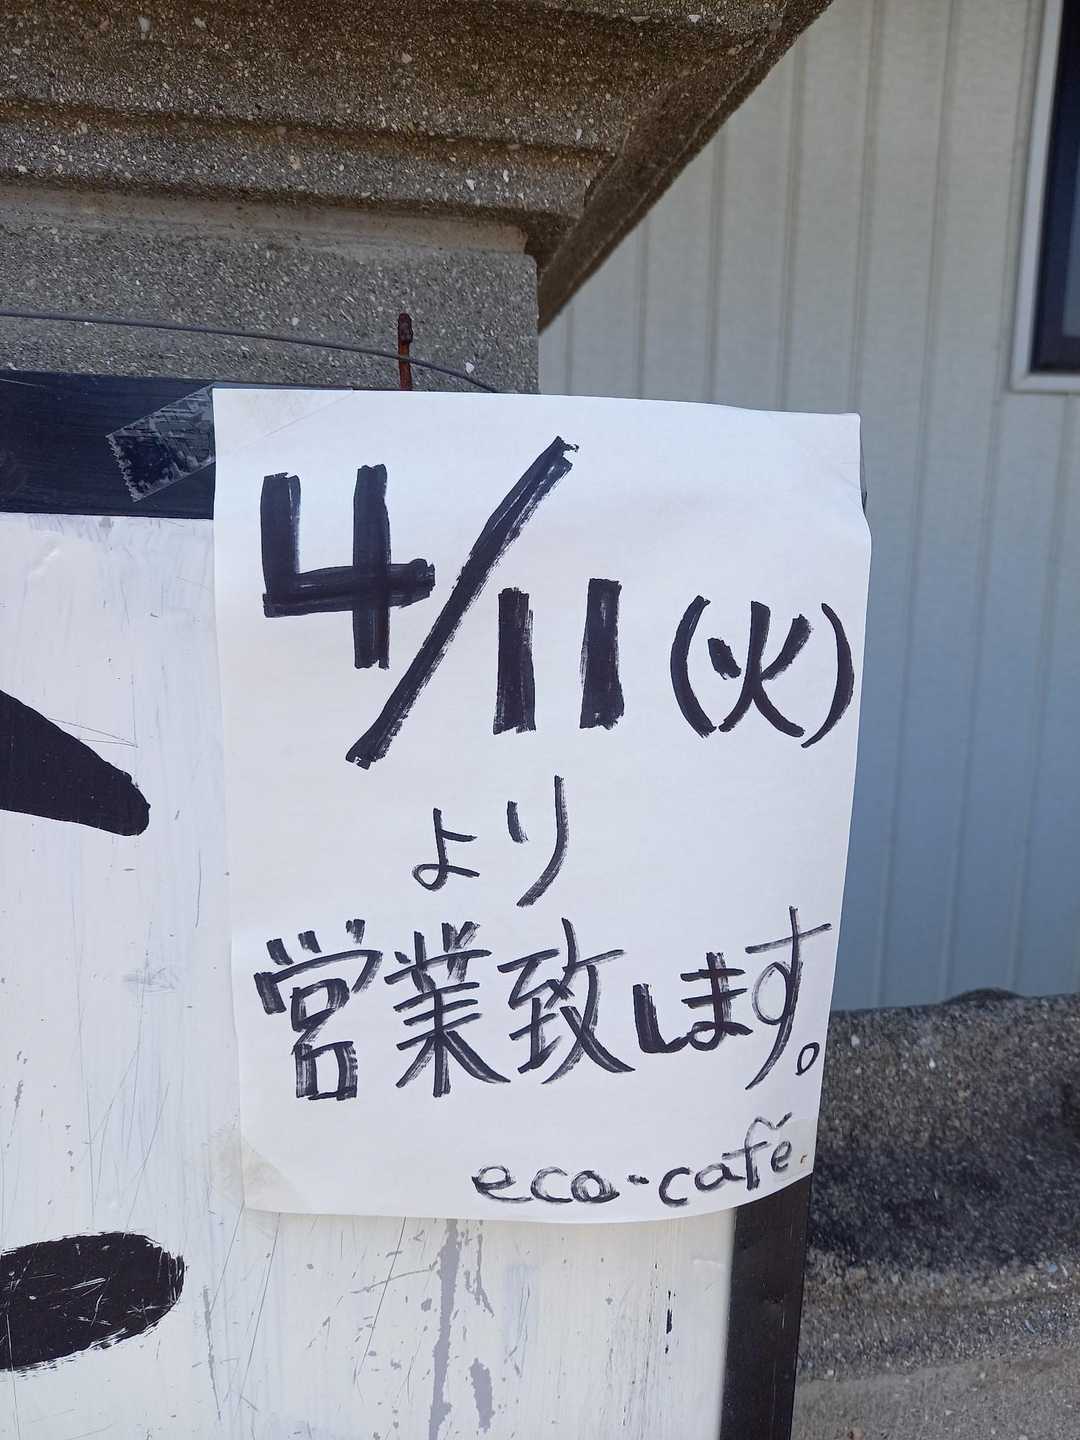 4/11(火)
より
営業致します。
eco-café